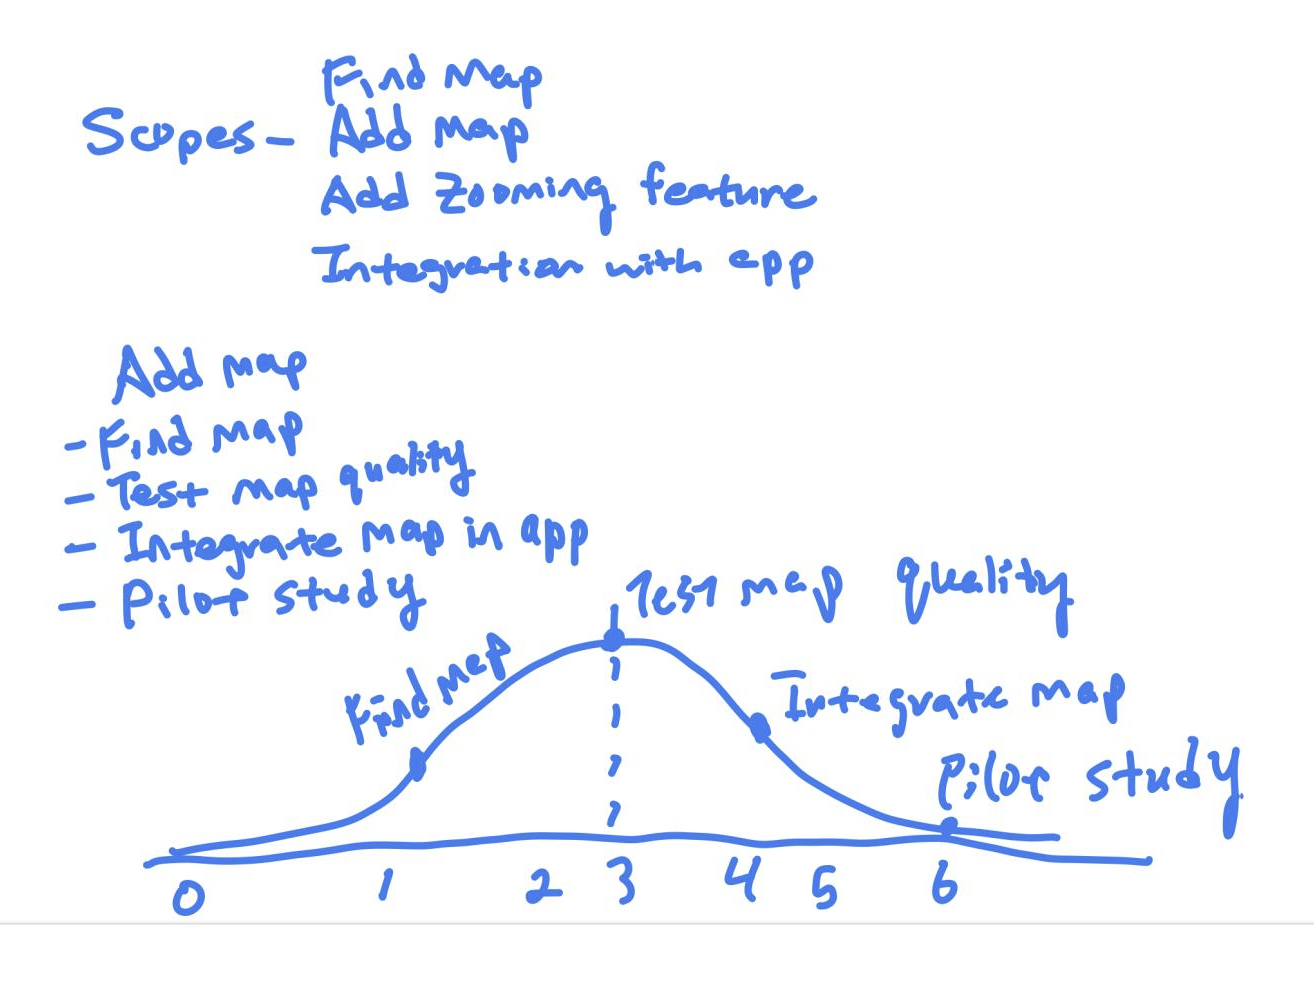 Find Map
Scopes - Add Map
Add Zooming feature
Integration with app
Add map
- Find Map
- Test map quality
- Integrate map in app
- Pilot study
Test map quality
Find Map
Integrate map
Pilot study
0 1 2 3 4 5 6